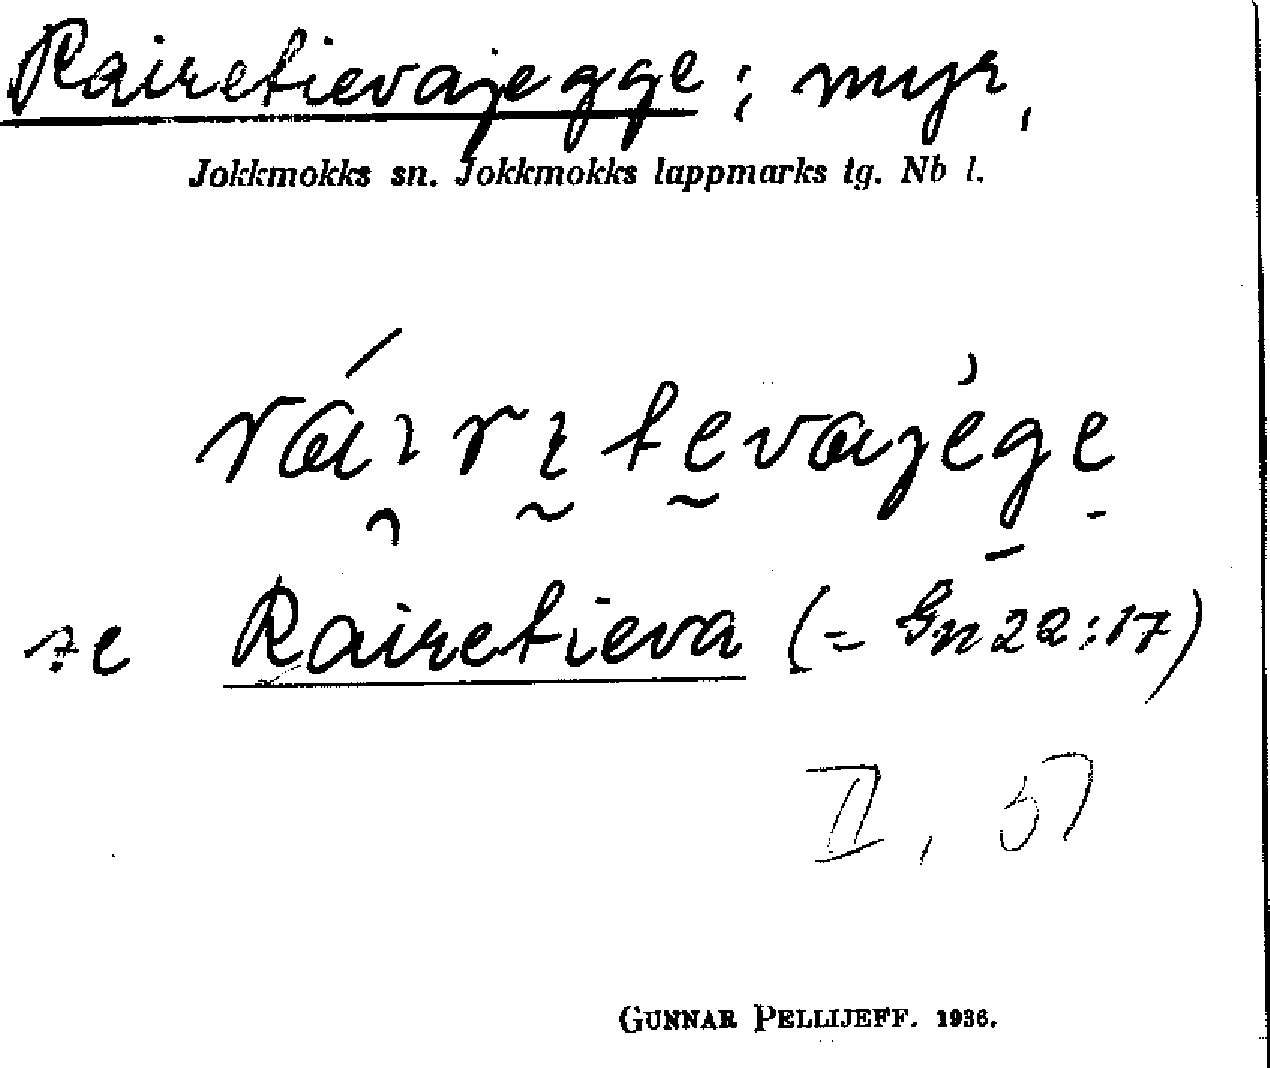 Rairetievajegge; myr,
Jokkmokks sn. Jokkmokks lappmarks tg. Nb l.
se Rairetieva (= Gn 22:17)
II, 57
GUNNAR PELLIJEFF. 1936.